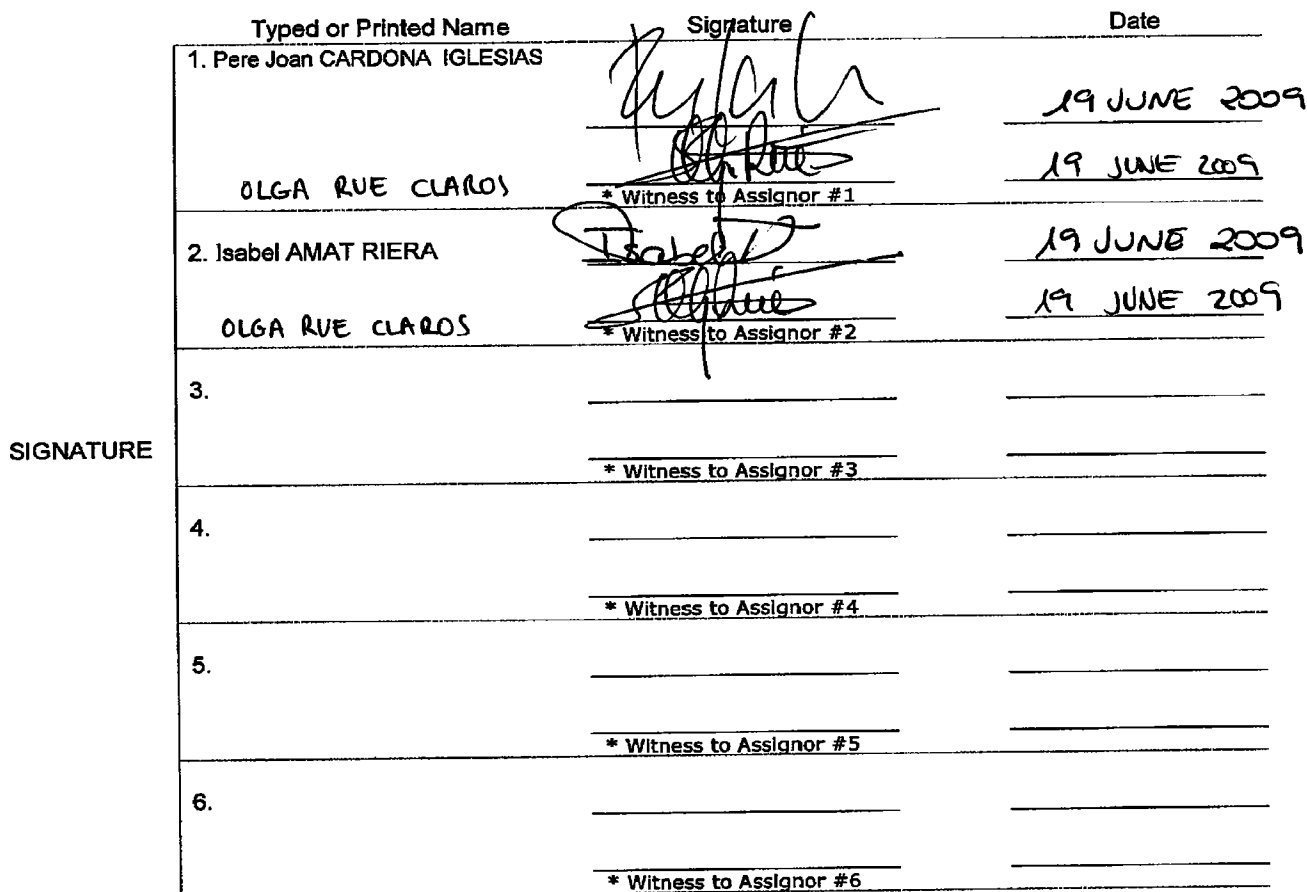 Typed or Printed Name Signature Date
1. Pere Joan CARDONA IGLESIAS
19 JUNE 2009
OLGA RUE CLAROS 19 JUNE 2009
* Witness to Assignor #1
2. Isabel AMAT RIERA Isabel 19 JUNE 2009
OLGA RUE CLAROS 19 JUNE 2009
* Witness to Assignor #2
3.
SIGNATURE
* Witness to Assignor #3
4.
* Witness to Assignor #4
5.
* Witness to Assignor #5
6.
* Witness to Assignor #6